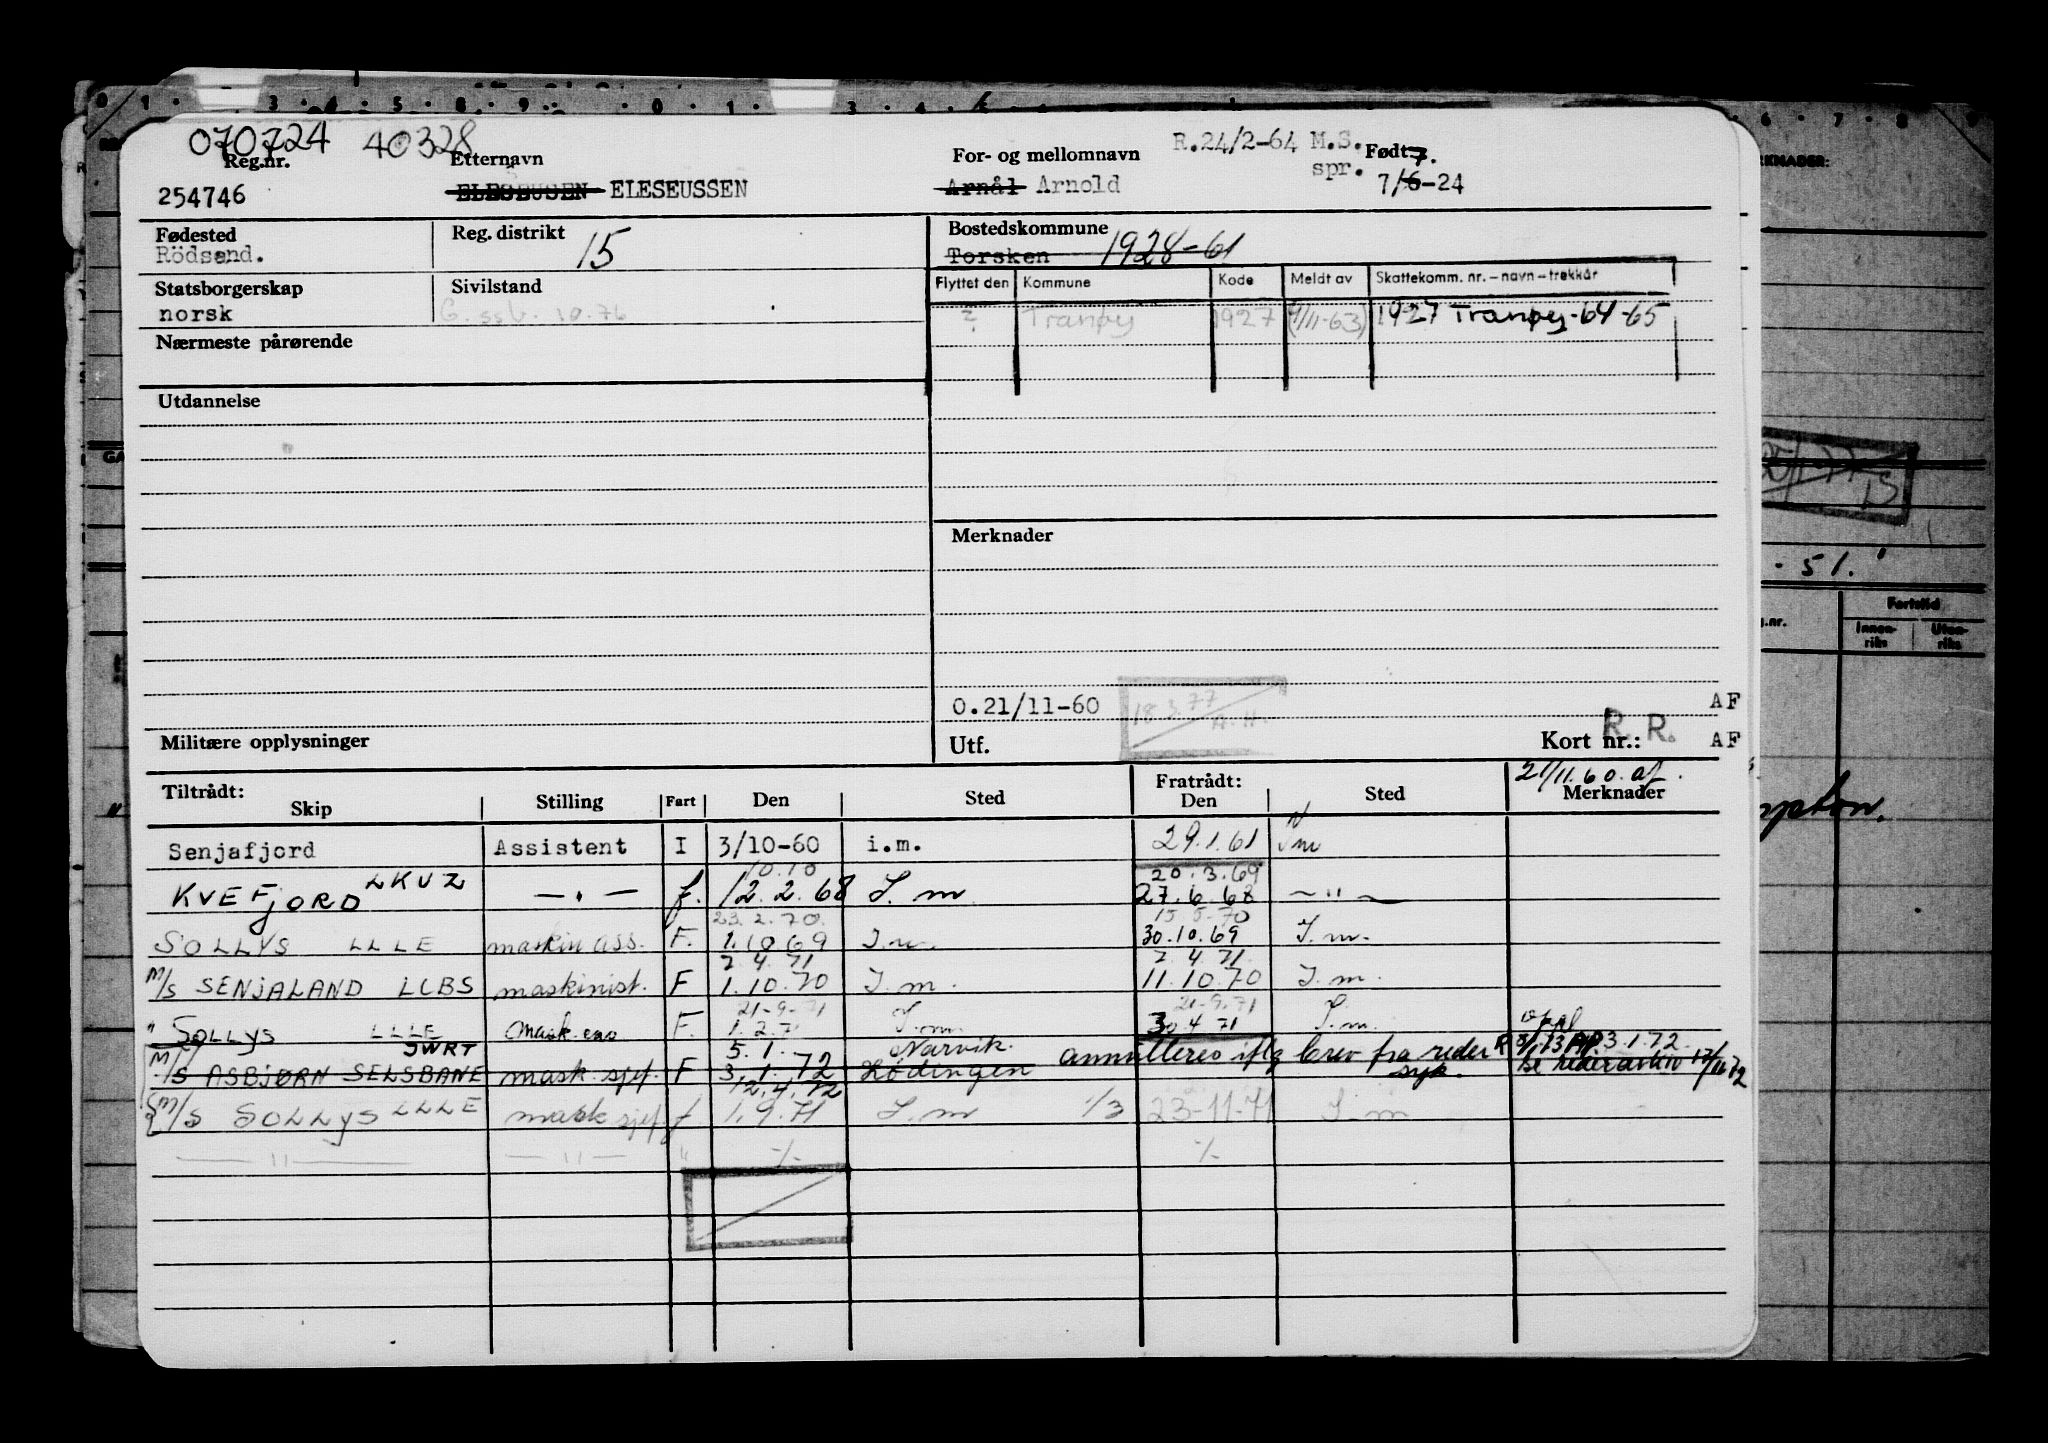 070724 40328
Reg.nr. Etternavn For- og mellomnavn R.24/2-64 M.S. spr. Født 7.
254746 ELESEUSEN ELESEUSSEN Arnål Arnold 7/6-24
Fødested Reg. distrikt 15 Bostedskommune
Rödsand. Torsken 1928-61
Statsborgerskap Sivilstand Flyttet den Kommune Kode Meldt av Skattekomm. nr. - navn - trekkår
norsk G. ssb. 10.76 ? Tranøy 1927 (4/11-63) 1927 Tranøy-64-65
Nærmeste pårørende
Utdannelse
Merknader
O.21/11-60 18 3.77 A.H. AF
Militære opplysninger Utf. Kort nr.: R. R. AF
21/11.60.af.
Tiltrådt: Fratrådt:
Skip Stilling Fart Den Sted Den Sted Merknader
Senjafjord Assistent I 3/10-60 i.m. 29.1.61 Im
10.10 20.3.69
KVEFJORD LKVZ — " — f. 12.2.68 I.m 27.6.68 — " —
23.2.70. 15.5.70
SOLLYS LLLE maskin ass. F. 1.10.69 I.m. 30.10.69 I.m.
2.4.71 2.4.71
M/S SENJALAND LCBS maskinist. F 1.10.70 I.m. 11.10.70 I.m.
21-9-71 21-9.71
" SOLLYS LLLE Mask. F. 1.2.71 I.m. 30.4.71 I.m.
JWRT 5.1. Narvik.
M/S ASBJØRN SELSBANE mask. sjef. F 3.1.72 Lødingen annulleres iflg brev fra reder 3.1.72
syk. se rederarkiv 17/11 72
12.4.72
M/S SOLLYS LLLE mask sjef. f 1.9.71 I.m 1/3 23-11-71 I.m
— " — — " — " -/- -/-
KNADER:
- 51.
Fartstid
.nr. Innen-riks Uten-riks